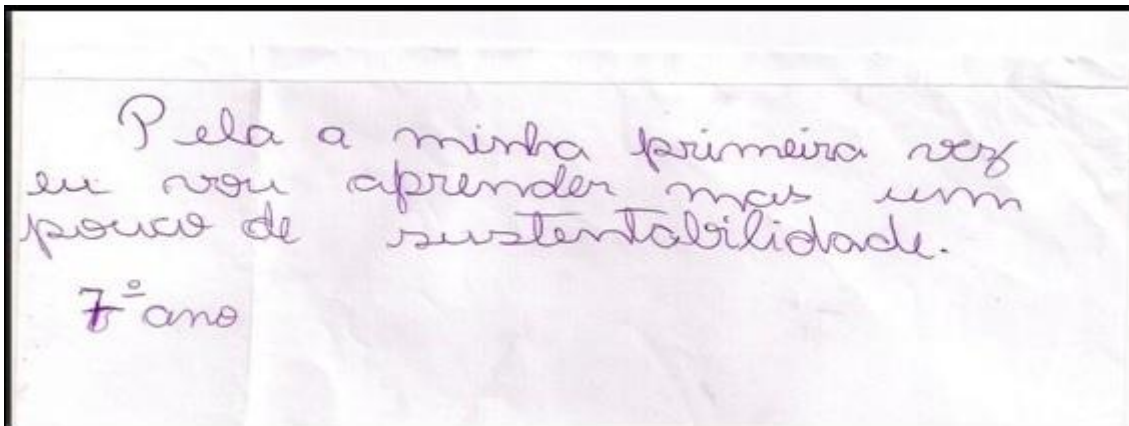 Pela a minha primeira vez
eu vou aprender mas um
pouco de sustentabilidade.
7º ano